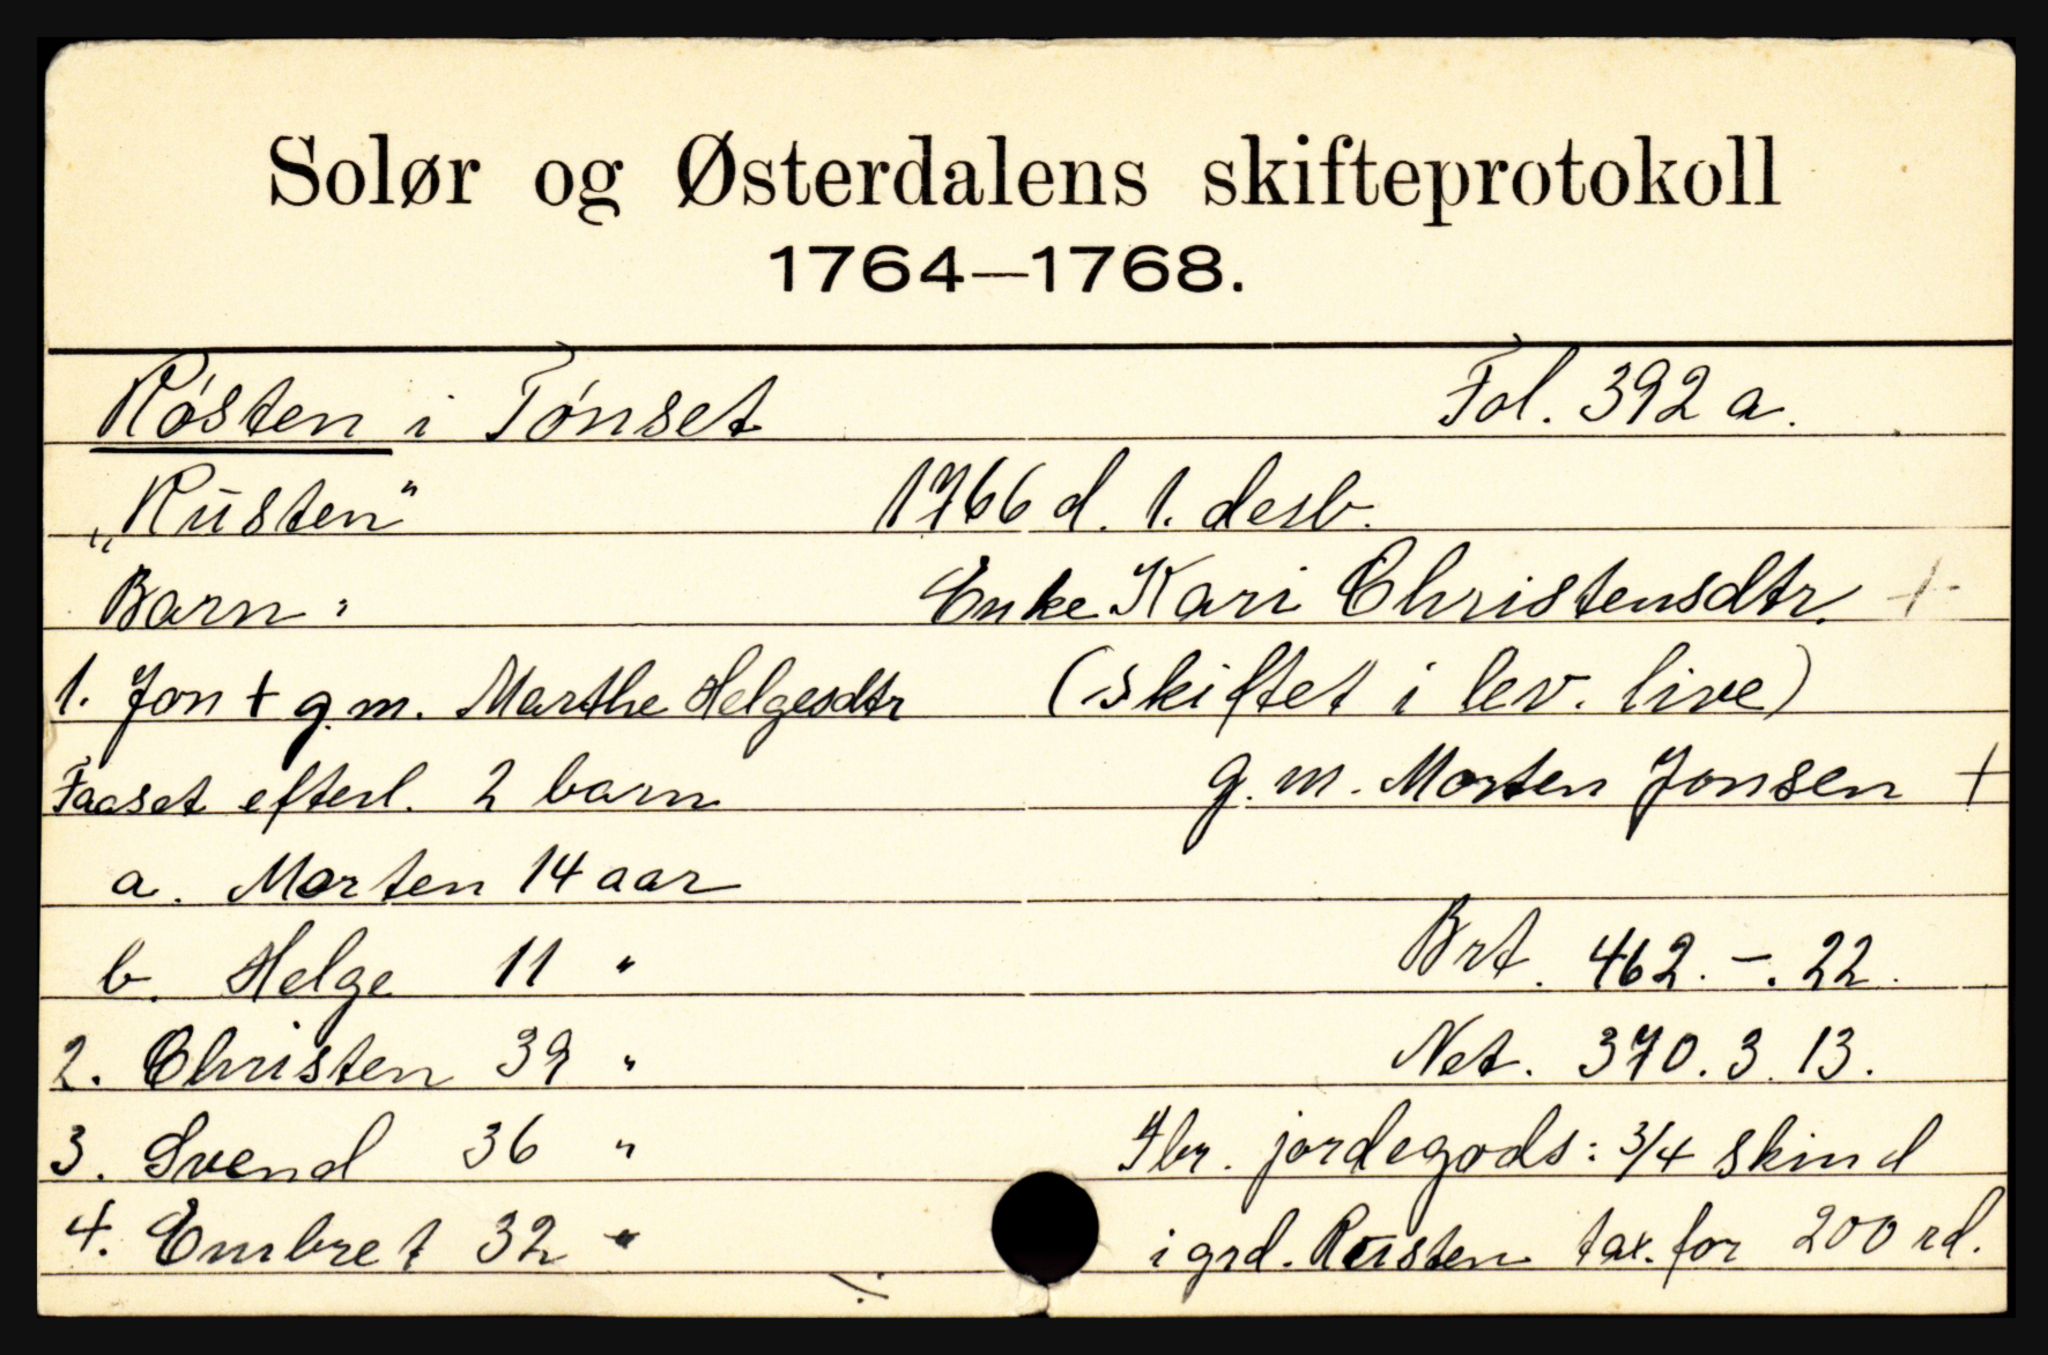 Solør og Østerdalens skifteprotokoll
1764—1768.
Røsten i Tønset Fol. 392 a.
„Rüsten" 1766 d. 1. desb.
Barn: Enke Kari Christensdtr. +
1. Jon + g.m. Marthe Helgesdtr (skiftet i lev. live)
Faaset efterl. 2 barn g.m. Morten Jonsen +
a. Morten 14 aar
b. Helge 11 " Brt. 462.-.22.
2. Christen 39 " Net. 370.3.13.
3. Svend 36 " Ibr. jordegods: 3/4 skind
4. Embret 32 " i grd. Rüsten tax. for 200 rd.